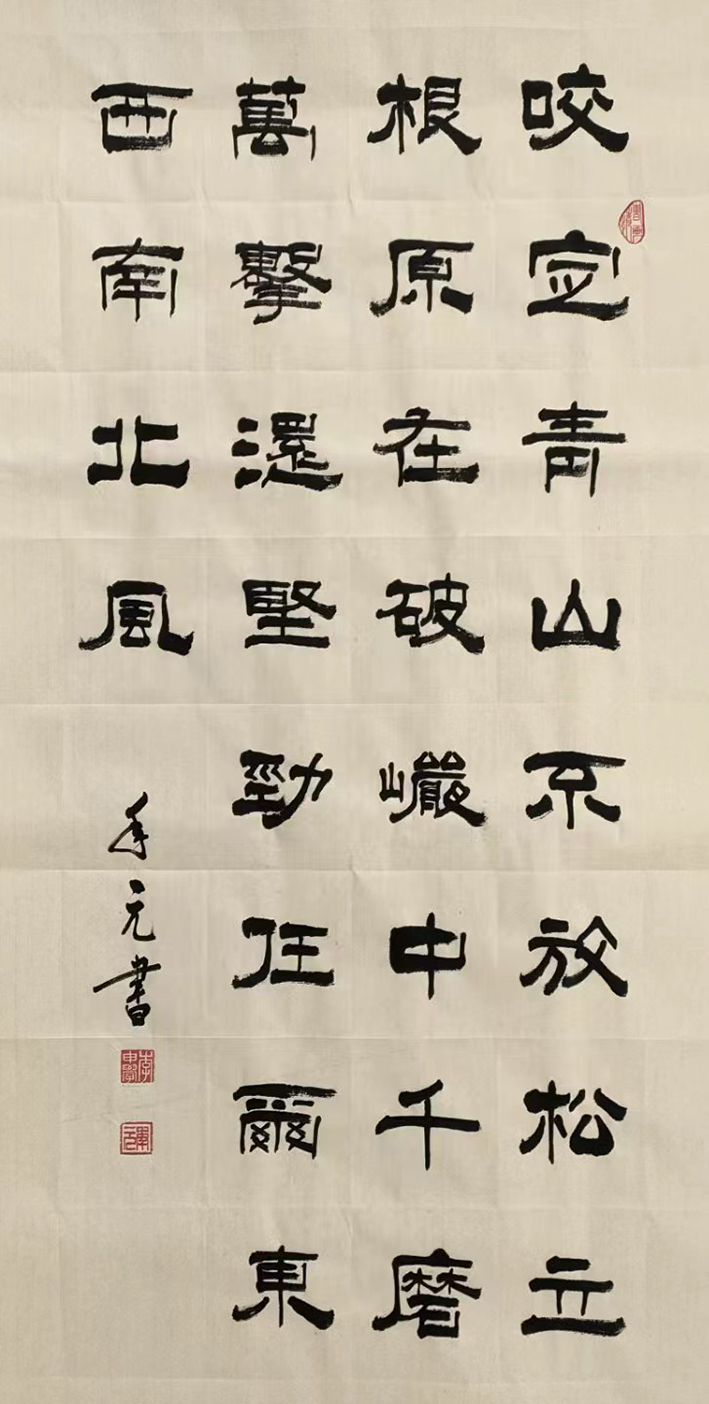 咬定青山不放松立
根原在破巗中千磨
萬擊還堅勁任爾東
西南北風
元書